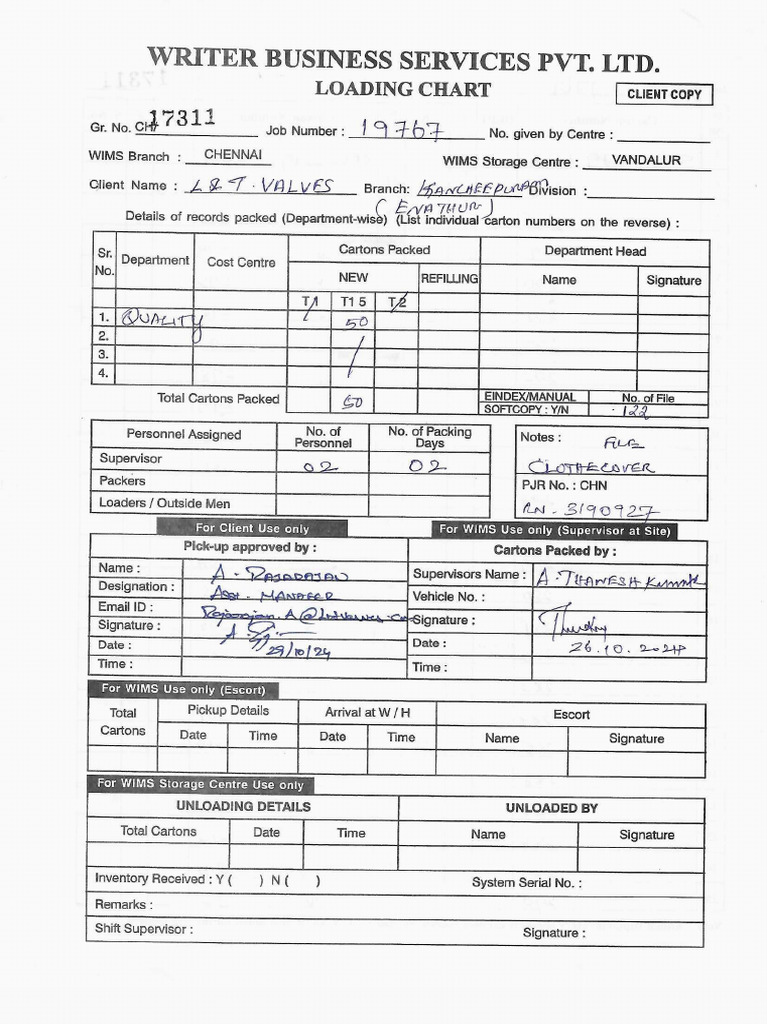 WRITER BUSINESS SERVICES PVT. LTD.
LOADING CHART
CLIENT COPY
Gr. No. CH/ 17311 Job Number : 19767 No. given by Centre :
WIMS Branch : CHENNAI WIMS Storage Centre : VANDALUR
Client Name : L & T. VALVES Branch: KANCHEEPURAM Division :
(ENATHUR)
Details of records packed (Department-wise) (List individual carton numbers on the reverse) :
Sr. No. Department Cost Centre Cartons Packed Department Head
NEW REFILLING Name Signature
T1 T1 5 T2
1. QUALITY 50
2.
3.
4.
Total Cartons Packed 50 EINDEX/MANUAL SOFTCOPY : Y/N No. of File 122
Personnel Assigned No. of Personnel No. of Packing Days
Supervisor 02 02
Packers
Loaders / Outside Men
Notes : FILE
CLOTHECOVER
PJR No. : CHN
RN. 3190927
For Client Use only For WIMS Use only (Supervisor at Site)
Pick-up approved by : Cartons Packed by :
Name : A. RAJARAJAN Supervisors Name : A. THANESH Kumar
Designation : Asst. MANAGER Vehicle No. :
Email ID :
Signature : Signature :
Date : 29/10/24 Date : 26.10.2024
Time : Time :
For WIMS Use only (Escort)
Total Cartons Pickup Details Arrival at W / H Escort
Date Time Date Time Name Signature
For WIMS Storage Centre Use only
UNLOADING DETAILS UNLOADED BY
Total Cartons Date Time Name Signature
Inventory Received : Y ( ) N ( ) System Serial No. :
Remarks :
Shift Supervisor : Signature :